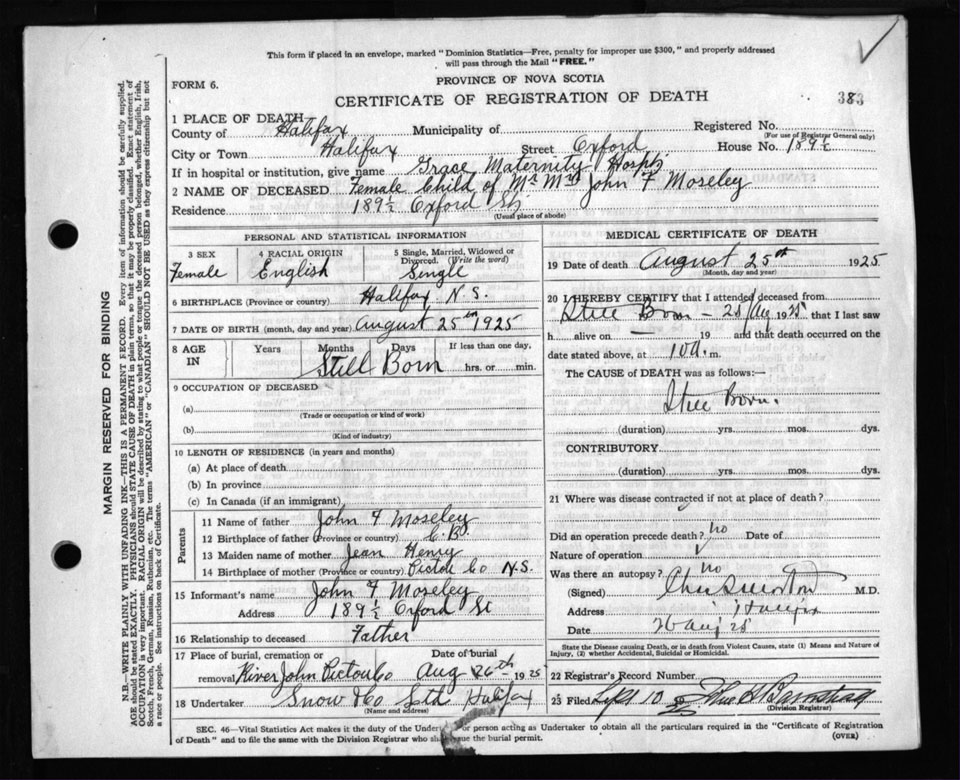 This form if placed in an envelope, marked "Dominion Statistics—Free, penalty for improper use $300," and properly addressed
will pass through the Mail "FREE."
FORM 6.
PROVINCE OF NOVA SCOTIA
383
CERTIFICATE OF REGISTRATION OF DEATH
1 PLACE OF DEATH
County of Halifax Municipality of Registered No.
(For use of Registrar General only)
City or Town Halifax Street Oxford House No. 189½
If in hospital or institution, give name Grace Maternity Hosptl
2 NAME OF DECEASED Female Child of Mr Mrs John F Moseley
Residence 189½ Oxford St
(Usual place of abode)
PERSONAL AND STATISTICAL INFORMATION
3 SEX 4 RACIAL ORIGIN 5 Single, Married, Widowed or
Divorced. (Write the word)
Female English Single
6 BIRTHPLACE (Province or country) Halifax N.S.
7 DATE OF BIRTH (month, day and year) August 25th 1925
8 AGE IN Years Months Days If less than one day,
Still Born hrs. or min.
9 OCCUPATION OF DECEASED
(a)
(Trade or occupation or kind of work)
(b)
(Kind of industry)
10 LENGTH OF RESIDENCE (in years and months)
(a) At place of death
(b) In province
(c) In Canada (if an immigrant)
Parents
11 Name of father John F Moseley
12 Birthplace of father (Province or country) C.B.
13 Maiden name of mother Jean Henry
14 Birthplace of mother (Province or country) Pictou Co N.S.
15 Informant's name John F Moseley
Address 189½ Oxford St
16 Relationship to deceased Father
17 Place of burial, cremation or Date of burial
removal River John Pictou Co Aug 26th 1925
18 Undertaker Snow & Co Ltd Halifax
(Name and address)
MEDICAL CERTIFICATE OF DEATH
19 Date of death August 25th 1925
(Month, day and year)
20 I HEREBY CERTIFY that I attended deceased from
Still Born — 25 Aug 1925 that I last saw
h alive on — 19 and that death occurred on the
date stated above, at 10 a. m.
The CAUSE of DEATH was as follows:—
Still Born.
(duration) yrs. mos. dys.
CONTRIBUTORY
(duration) yrs. mos. dys.
21 Where was disease contracted if not at place of death?
Did an operation precede death? no Date of
Nature of operation
Was there an autopsy? no
(Signed) M.D.
Address Halifax
Date 26 Aug 25
State the Disease causing Death, or in death from Violent Causes, state (1) Means and Nature of
Injury, (2) whether Accidental, Suicidal or Homicidal.
22 Registrar's Record Number
23 Filed Sept 10 John H Barnstead
(Division Registrar)
SEC. 46—Vital Statistics Act makes it the duty of the Undertaker or person acting as Undertaker to obtain all the particulars required in the "Certificate of Registration
of Death" and to file the same with the Division Registrar who shall issue the burial permit.
(OVER)
MARGIN RESERVED FOR BINDING
N.B.—WRITE PLAINLY WITH UNFADING INK—THIS IS A PERMANENT RECORD. Every item of information should be carefully supplied.
AGE should be stated EXACTLY. PHYSICIANS should STATE CAUSE OF DEATH in plain terms, so that it may be properly classified. Exact statement of
OCCUPATION is very important. RACIAL ORIGIN will be described by stating to what people or tongue the deceased person belonged, whether English, Irish,
Scotch, French, German, Russian, Ruthenian, etc. The terms "AMERICAN" or "CANADIAN" SHOULD NOT BE USED as they express citizenship but not
a race or people. See instructions on back of Certificate.